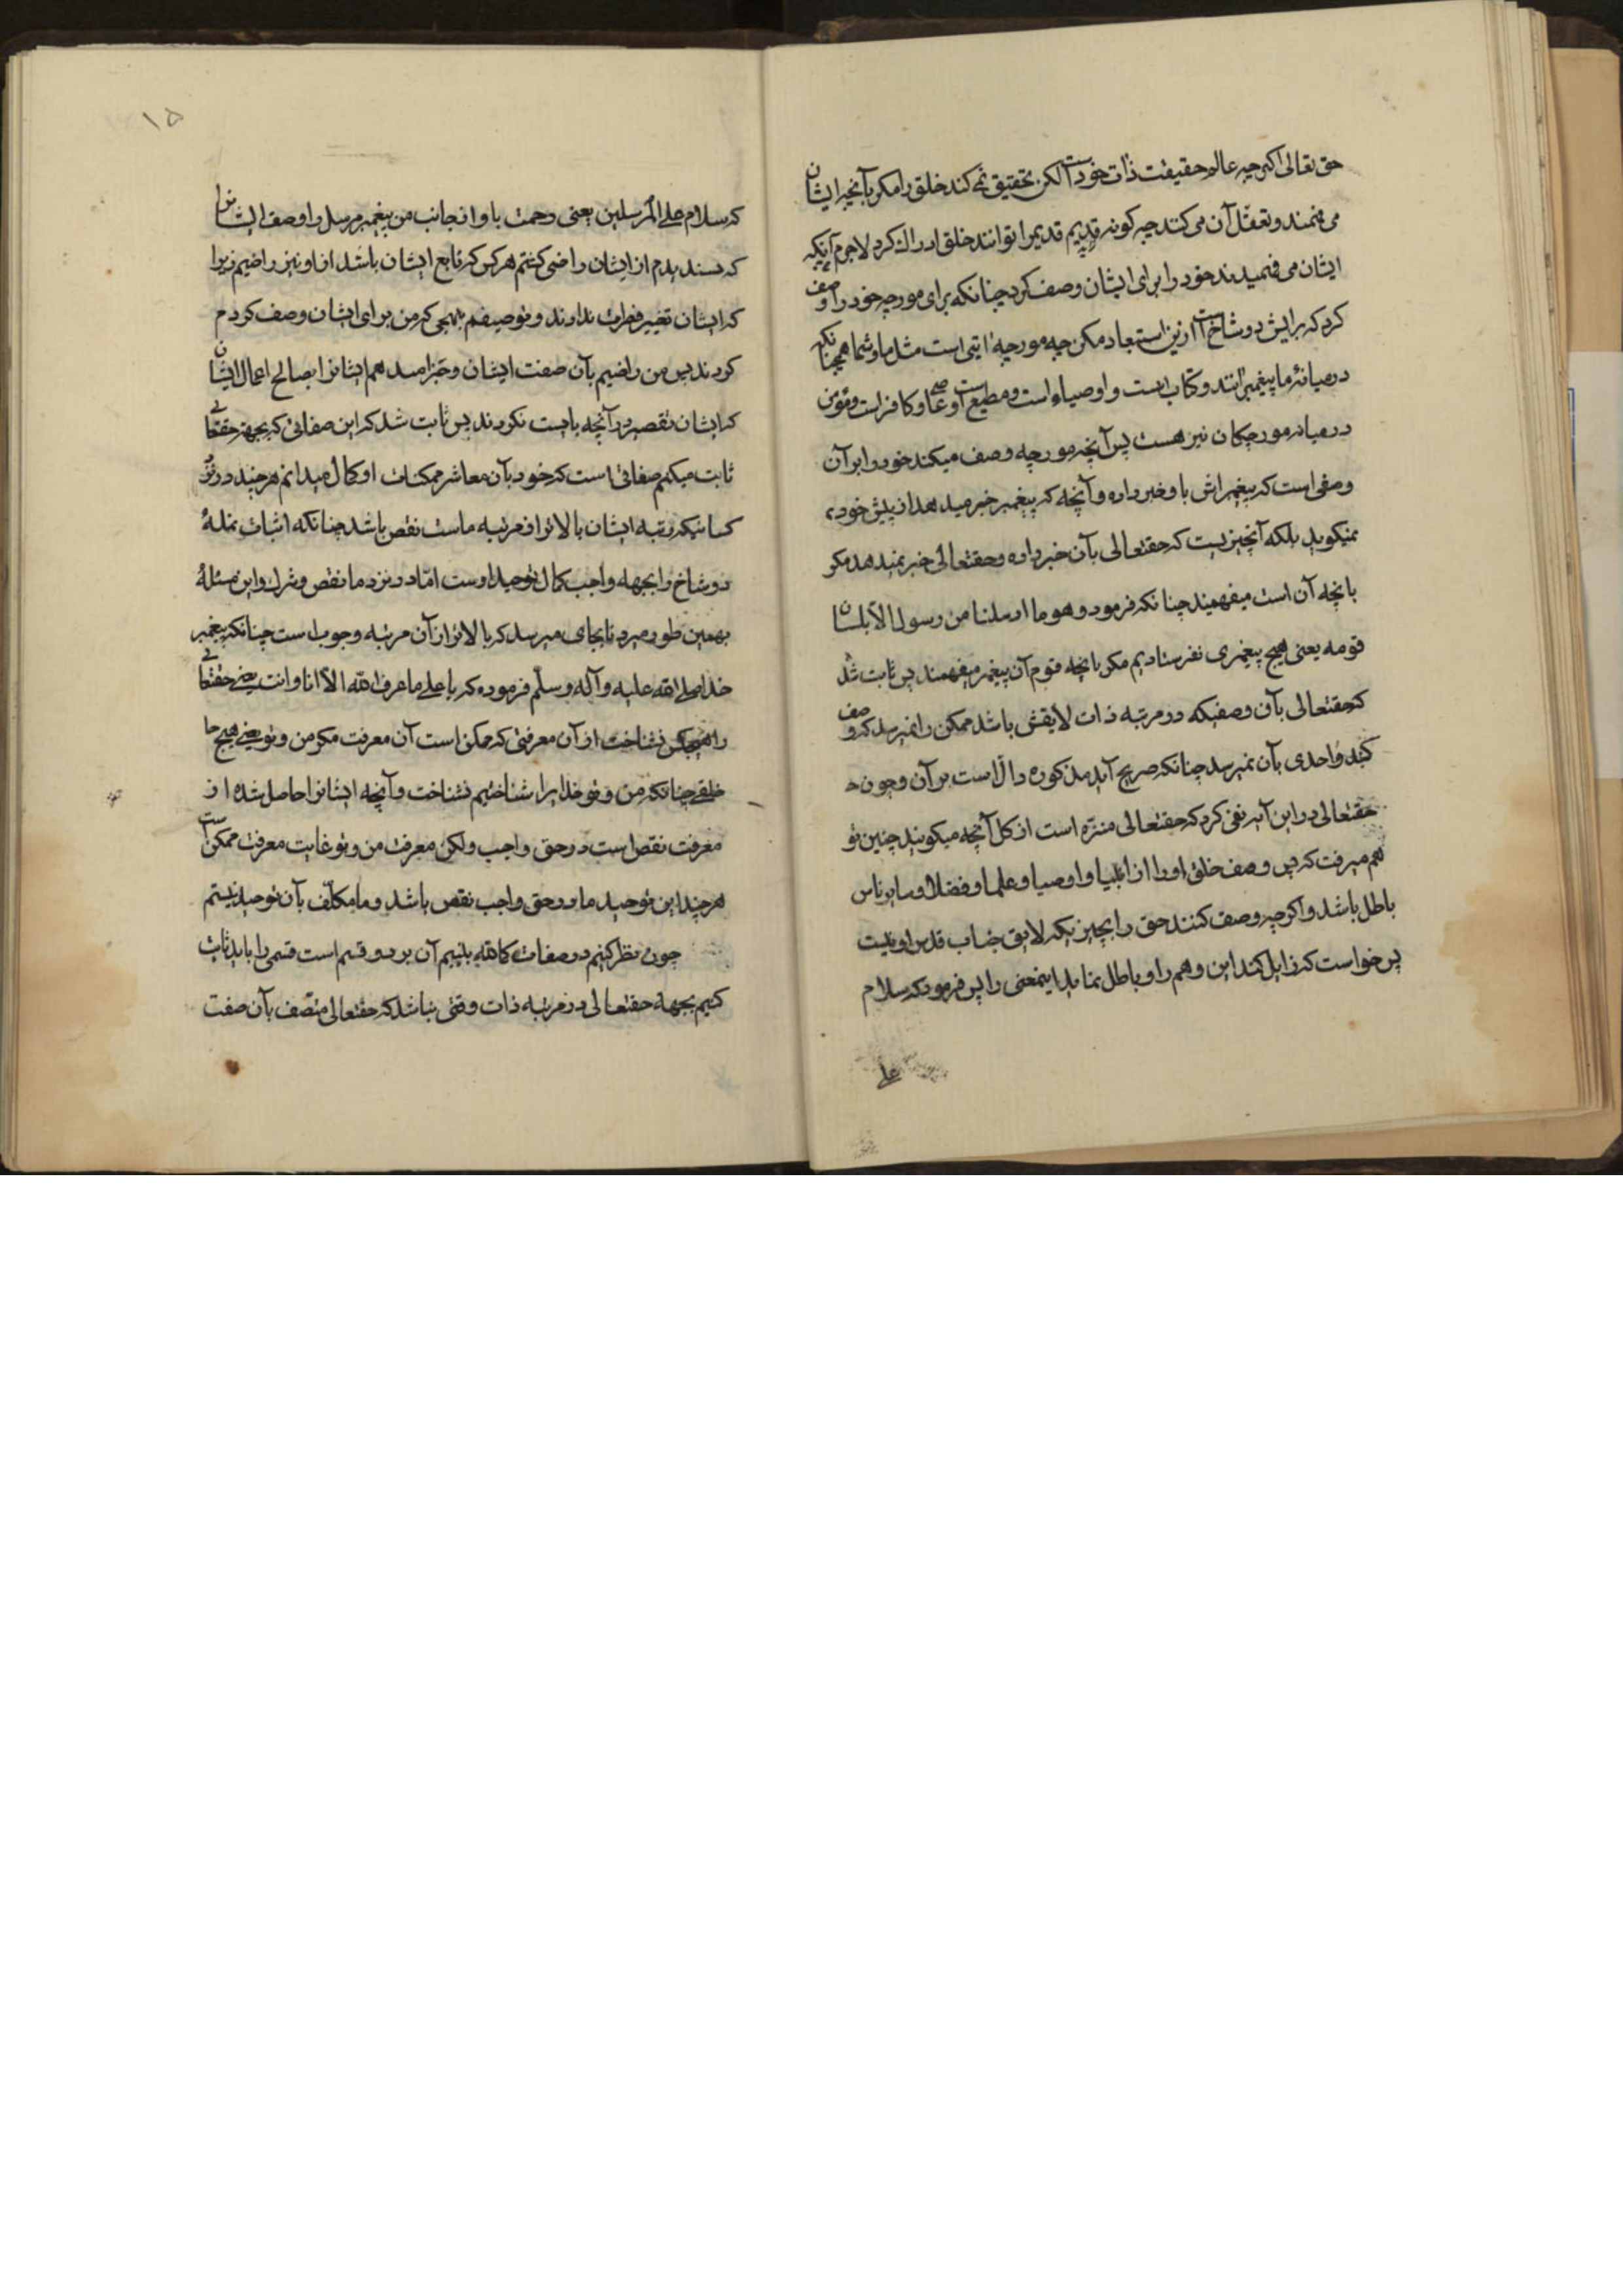 حق تعالی اکرچه عالم حقیقت ذات خود است لکن تحقیق نمی کند خلق را مکر بآنچه ایشان
می فهمند و تعقّل آن می کنند چه کونه قدیم قدیم را توانند خلق ادراک کرد لاجرم آنکه
ایشان می فهمیدند خود را برای ایشان وصف کرد چنانکه برای مورچه خود را وصف
کرد که برایش دو شاخ است ازین استبعاد مکن چه مورچه امتی است مثل ما و شما همچنانکه
در میانۀ ما پیغمبرانند و کتاب است و اوصیاء است و مطیع است و عاصی و کافر است و مؤمن
در میانه مورچکان نیز هست پس آنچه مورچه وصف میکند خود را بر آن
وصفی است که پیغمبراش باو خبر داده و آنچه که پیغمبر خبر میدهد از پیش خود
نمیکوید بلکه آنچیزیست که حقتعالی بآن خبر داده و حقتعالی خبر نمیدهد مکر
بانچه آن امت میفهمیند چنانکه فرمود و هو ما ارسلنا من رسول الّا بلسان
قومه یعنی هیچ پیغمبری نفرستادیم مکر بانچه قوم آن پیغمبر میفهمند پس ثابت شد
که حقتعالی بآن وصفیکه در مرتبه ذات لایقش باشد ممکن را نمیرسد که وصف
کند و احدی بآن نمیرسد چنانکه صریح آیه مذکوره دالّ است بر آن و چون
حقتعالی در این آیه نفی کرد که حقتعالی منزّه است از کل آنچه میکویند چنین تو
هم میرفت که پس وصف خلق او را از انبیا و اوصیا و علما و فضلا و سایر ناس
باطل باشد و اکرچه وصف کنند حق را بچیزیکه لایق جناب قدس او نیست
پس خواست که زایل کند این وهم را و باطل نماید اینمعنی را پس فرمود که سلام
علی
۱۵
که سلام علی المرسلین یعنی رحمت باد از جانب من پیغمبر مرسل را وصف ایشانرا
که پسندیدم از ایشان راضی کشتم هر کس که تابع ایشان باشد از او نیز راضیم زیرا
که ایشان تغییر فطرت ندادند و توصیفم بنهجی که من برای ایشان وصف کردم
کردند پس من راضیم بآن صفت ایشان و جزا میدهم ایشانرا بصالح اعمال ایشان
که ایشان تقصیر در آنچه بایست نکردند پس ثابت شد که این صفاتی که بجهة حقتعالی
ثابت میکنیم صفاتی است که خود بآن معاشر ممکنات او کمال میدانم هر چند در نزد
کسانیکه رتبه ایشان بالاتر از مرتبه ماست نقص باشد چنانکه اثبات نمله
دو شاخ را بجهة واجب کمال توحید اوست امّا در نزد ما نقص و شرک و این مسئله
بهمین طور میرود تا بجای میرسد که بالاتر از آن مرتبه وجوب است چنانکه پیغمبر
خدا صلی الله علیه و آله و سلّم فرموده که یا علی ما عرف الله الّا انا و انت یعنی حقتعالی
را هیچکس نشناخت از آن معرفتی که ممکن است آن معرفت مکر من و تو یعنی هیچ
خلقی چنانکه من و تو خدایرا شناختیم نشناخت و آنچه ایشانرا حاصل شده از
معرفت نقص است در حق واجب ولکن معرفت من و تو غایت معرفت ممکن است
هر چند این توحید ما در حق واجب نقص باشد و ما مکلّف بآن توحید نیستیم
چون نظر کنیم در صفات کامله بینیم آن بر دو قسم است قسمی را باید ثابت
کنیم بجهة حقتعالی در مرتبه ذات وقتی نباشد که حقتعالی متّصف بآن صفت